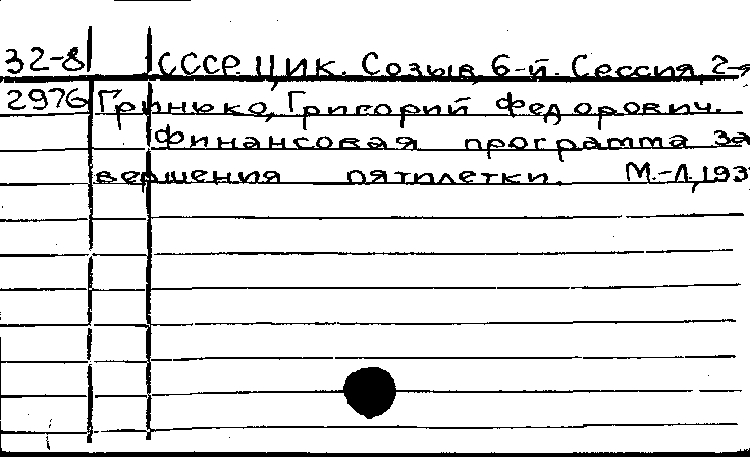 32-8 СССР. ЦИК. Созыв, 6-й. Сессия, 2-я
2976 Гринько, Григорий Федорович.
Финансовая программа за
вершения пятилетки. М.-Л., 193